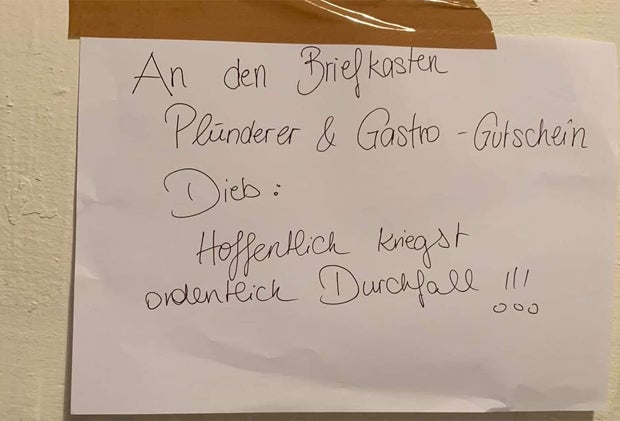 An den Briefkasten
Plünderer & Gastro - Gutschein
Dieb :
Hoffentlich kriegst
ordentlich Durchfall !!!